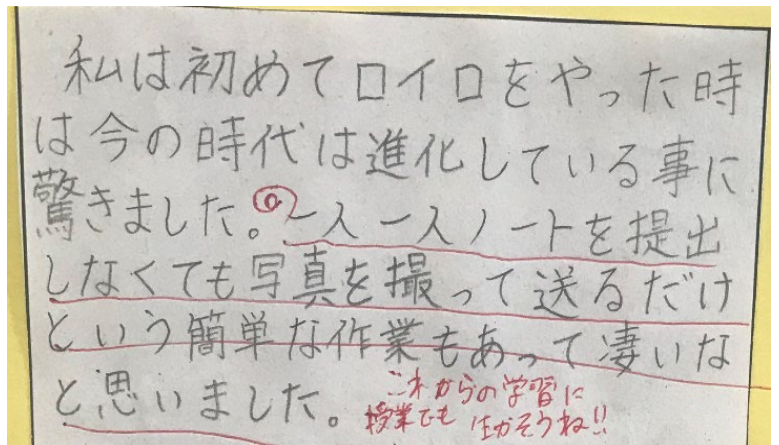 私は初めてロイロをやった時
は今の時代は進化している事に
驚きました。一人一人ノートを提出
しなくても写真を撮って送るだけ
という簡単な作業もあって凄いな
と思いました。
これからの学習に
授業でも 生かそうね!!